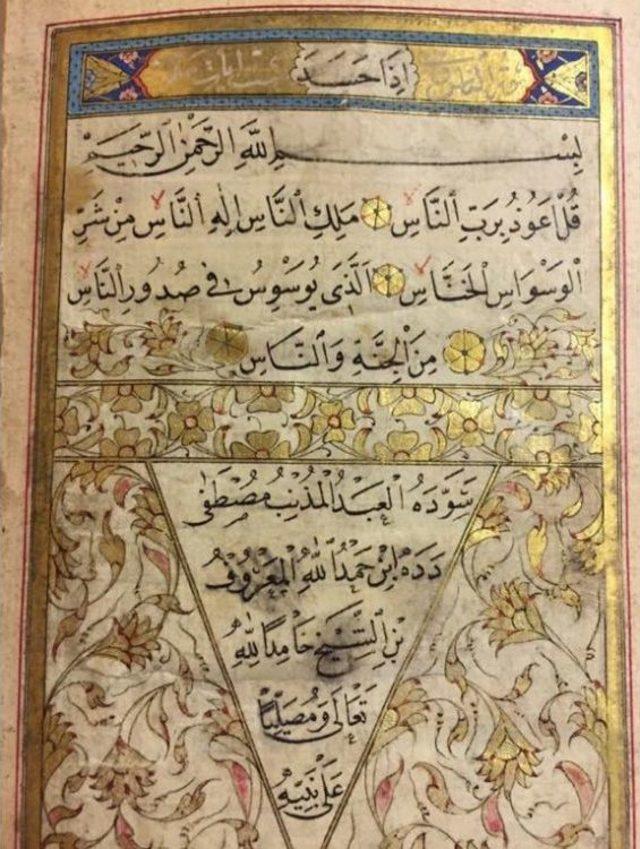 اِذَا حَسَدَ
بِسْمِ اللّٰهِ الرَّحْمٰنِ الرَّحِيمِ
قُلْ اَعُوذُ بِرَبِّ النَّاسِ مَلِكِ النَّاسِ اِلٰهِ النَّاسِ مِنْ شَرِّ
الْوَسْوَاسِ الْخَنَّاسِ اَلَّذِى يُوَسْوِسُ فِى صُدُورِ النَّاسِ
مِنَ الْجِنَّةِ وَالنَّاسِ
سَوَّدَهُ الْعَبْدُ الْمُذْنِبُ مُصْطَفٰى
دَدَه اِبْنِ حَمْدُ اللّٰهِ الْمَعْرُوفُ
بْنِ الشَّيْخِ حَامِدًا لِلّٰهِ
تَعَالٰى وَمُصَلِّيًا
عَلٰى نَبِيِّهِ